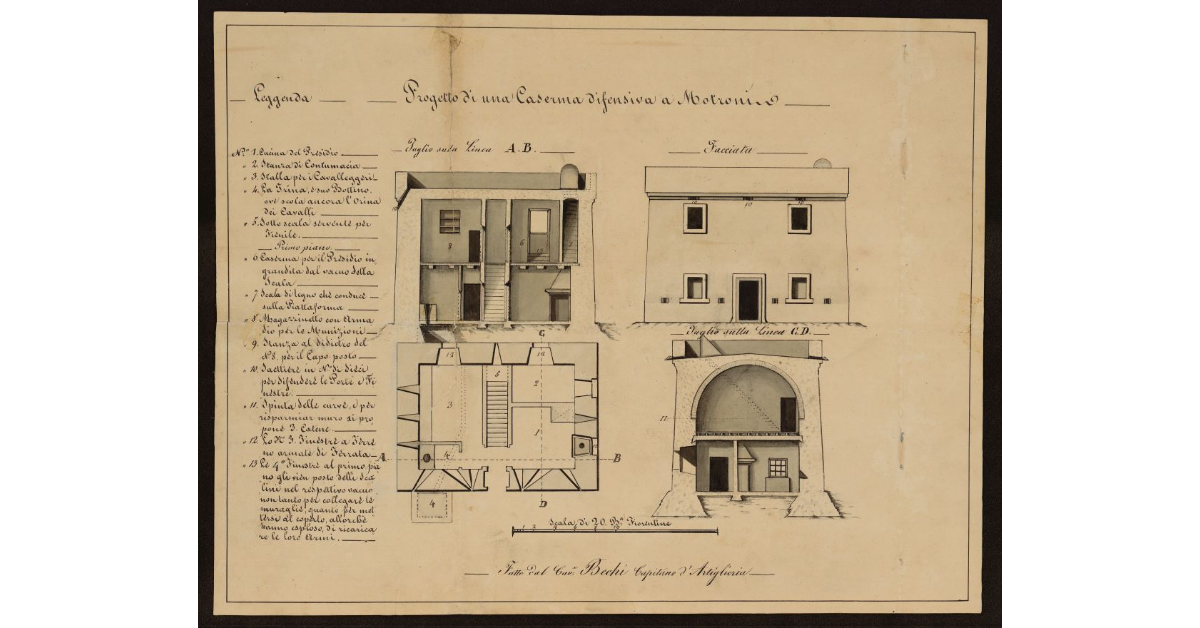 Leggenda
Progetto di una Caserma difensiva a Motrone
N.º 1. Cucina del Presidio
" 2. Stanza di Contumacia
" 3. Stalla per i Cavalleggeri
" 4. La Trina, e suo Bottino,
ove scola ancora l'Orina
dei Cavalli
" 5. Sotto scala servente per
Fienile.
Primo piano.
" 6. Caserma per il Presidio in,,
grandita dal vacuo della
Scala
" 7. Scala di legno che conduce
sulla Piattaforma
" 8. Magazzinetto con Arma,,
dio per le Munizioni
" 9. Stanza al didietro del
N.º 8. per il Capo posto
" 10. Saettiere in N.º di dieci
per difendere le Porte e Fi,,
nestre
" 11. Spinta delle curve, e per
risparmiar muro si pro,,
pone 3. Catene
" 12. Le N.º 3. Finestre a Terre,,
no armate di Ferrata
" 13. Le 4.º Finestre al primo pia,,
no gli vien posto delli
nel respettivo vacuo
non tanto per collegare le
muraglie, quanto per met,,
tersi al coperto, allorchè
hanno esploso, di ricarica,,
re le loro Armi.
Taglio sulla Linea A. B.
Facciata
8
6
13
10
10
10
Taglio sulla Linea C. D.
11
C
12
10
5
2
3
1
A
B
4
4
D
Scala di 20. B.ª Fiorentine
Fatto dal Cav. Bechi Capitano d'Artiglieria